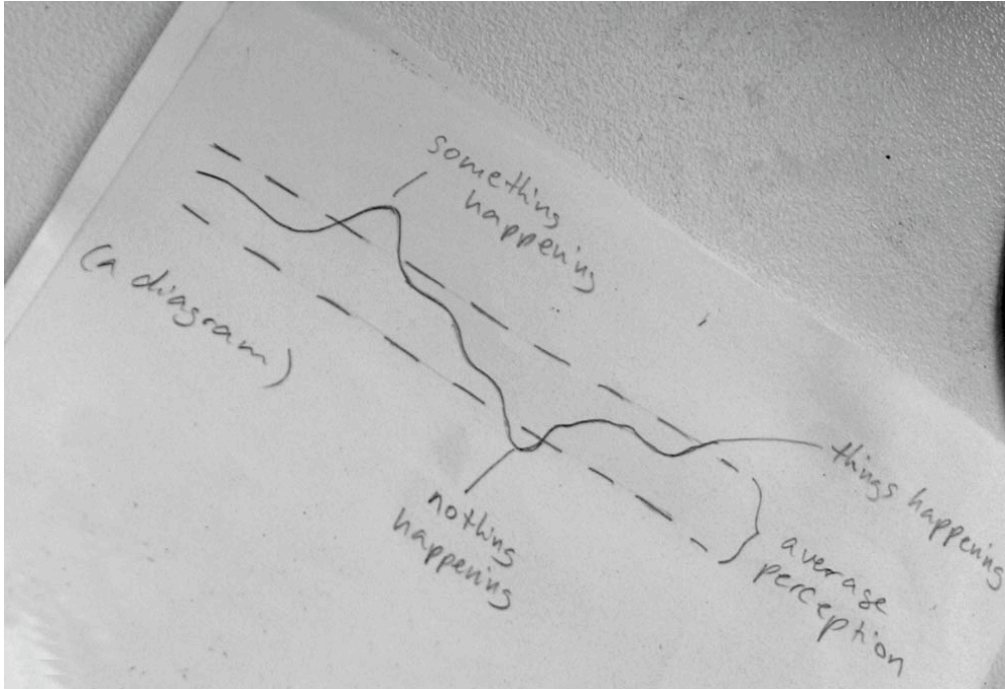 something
happening
(a diagram)
things happening
nothing
happening
average
perception